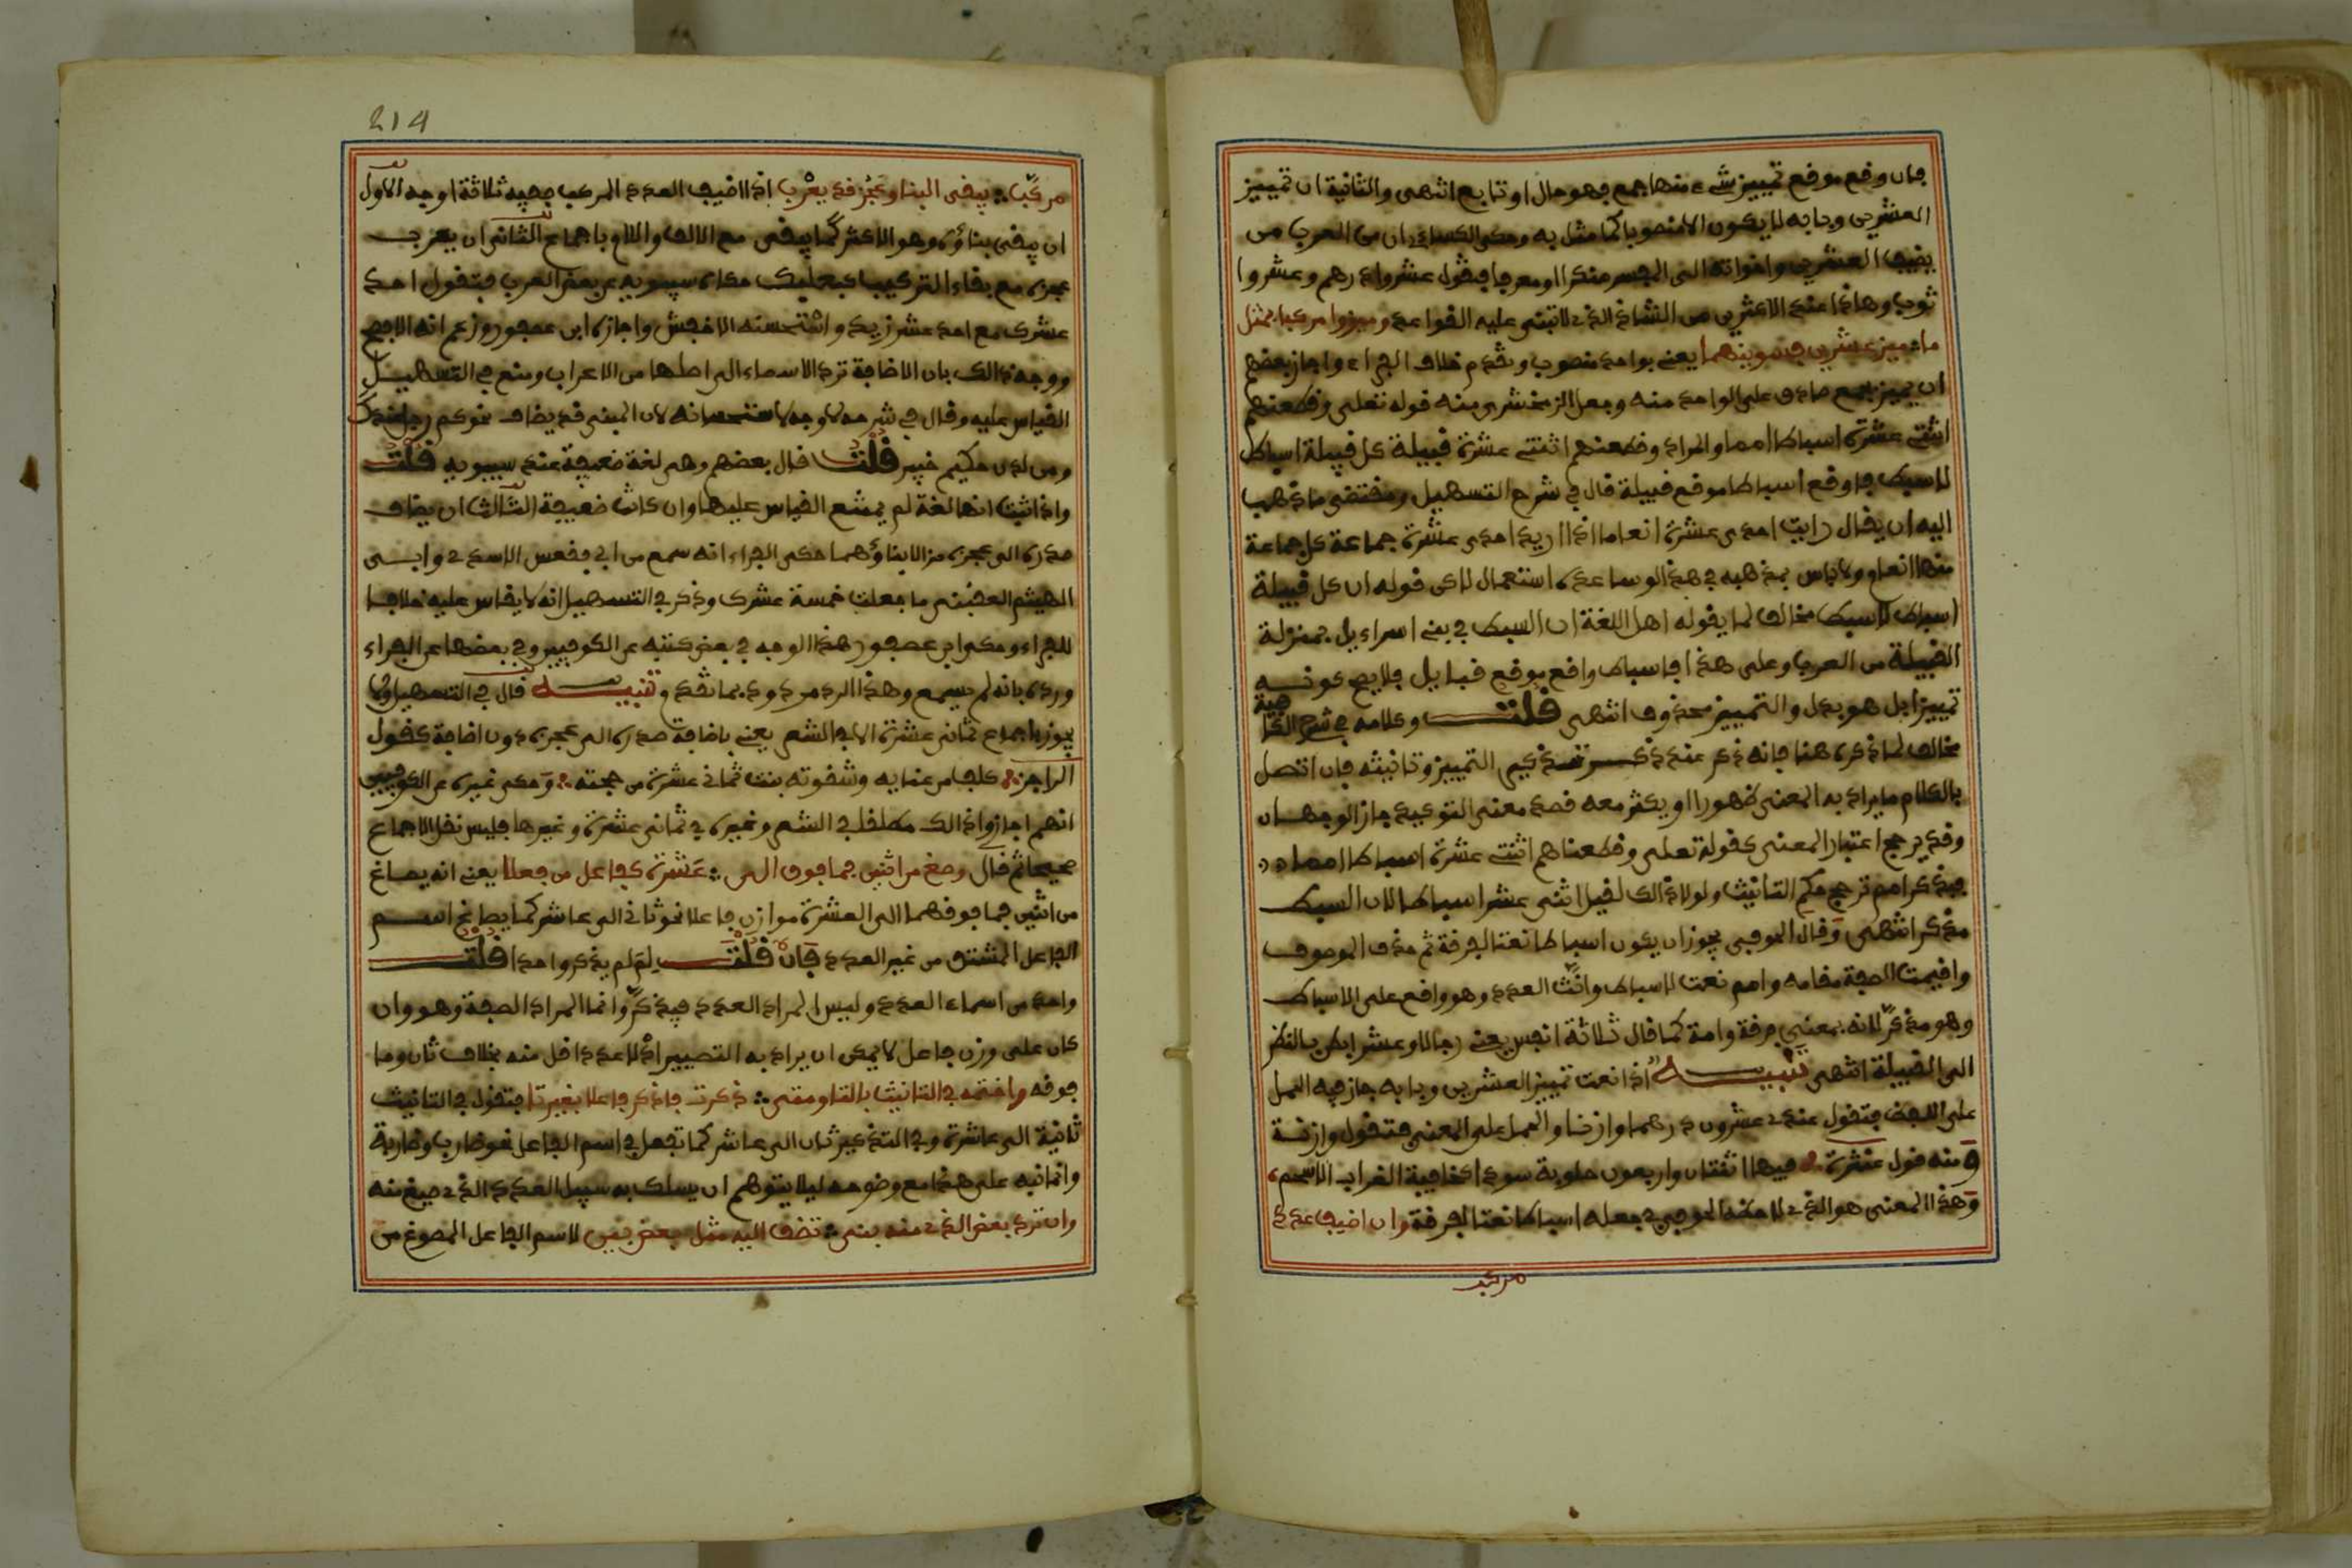 فإن وقع موقع تمييز شيء منها جمع فهو حال او تابع انتهى والثانية ان تمييز
العشرين وبابه لا يكون الا منصوبا كما مثل به وحكى الكسائي ان من العرب من
يضيف العشرين واخواته الى المفسر منكرا او معرفا فيقول عشروا درهم وعشروا
ثوب وهاذا عند الاكثرين من الشاذ الذي لا تبنى عليه القواعد وميزوا مركبا بمثل
ما ميز عشرين فسوينهما يعني بواحد منصوب وتقدم خلاف الفراء واجاز بعضهم
ان يميز بجمع صادق على الواحد منه وجعل الزمخشري منه قوله تعلى وقطعنهم
اثنتي عشرة اسباطا امما والمراد وقطعنهم اثنتي عشرة قبيلة كل قبيلة اسباط
لا سبط فاوقع اسباطا موقع قبيلة قال في شرح التسهيل ومقتضى ما ذهب
اليه ان يقال رايت احدى عشرة انعاما اذا اريد احدى عشرة جماعة كل جماعة
منها انعام ولا باس بمذهبه في هذا لو ساعده استعمال لاكن قوله ان كل قبيلة
اسباط لا سبط مخالف لما يقوله اهل اللغة ان السبط في بني اسراءيل بمنزلة
القبيلة من العرب وعلى هذا فاسباط واقع موقع قبايل فلا يصح كونه
تمييزا بل هو بدل والتمييز محذوف انتهى قلت وكلامه في شرح الكافية
مخالف لما ذكره هنا فانه ذكر عند ذكر تذكير التمييز وتانيثه فان اتصل
بالكلام ما يراد به المعنى ظهورا او يكثر معه قصد معنى التوكيد جاز الوجهان
وقد يرجح اعتبار المعنى كقوله تعلى وقطعناهم اثنتي عشرة اسباطا امما
فبذكر امم ترجح حكم التانيث ولولا ذالك لقيل اثنى عشر اسباطا لان السبط
مذكر انتهى وقال الحوفي يجوز ان يكون اسباطا نعتا لفرقة ثم حذف الموصوف
واقيمت الصفة مقامه وامم نعت لاسباط وانث العدد وهو واقع على الاسباط
وهو مذكر لانه بمعنى فرقة وامة كما قال ثلاثة انفس يعني رجالا وعشر ابطن بالنظر
الى القبيلة انتهى تنبيه اذا نعت تمييز العشرين وبابه جاز فيه الحمل
على اللفظ فتقول عندي عشرون درهما وازنا والحمل على المعنى فتقول وازنة
ومنه قول عنترة فيها اثنتان واربعون حلوبة سودا كخافية الغراب الاسحم
وهذا المعنى هو الذي لاحظه الحوفي في جعله اسباطا نعتا لفرقة وان اضيف عدد
مركب
214
مركب يبقى البنا وعجز قد يعرب اذا اضيف العدد المركب ففيه ثلاثة اوجه الاول
ان يبقى بناؤه وهو الاكثر كما يبقى مع الالف واللام باجماع الثاني ان يعرب
عجزه مع بقاء التركيب كبعلبك حكاه سيبويه عن بعض العرب فتقول احد
عشرك مع احد عشر زيد واستحسنه الاخفش واجازه ابن عصفور وزعم انه الافصح
ووجه ذالك بان الاضافة ترد الاسماء الى اصلها من الاعراب ومنع في التسهيل
القياس عليه وقال في شرحه لا وجه لاستحسانه لان المبنى قد يضاف نحو كم رجل عندك
ومن لدن حكيم خبير قلت قال بعضهم وهي لغة ضعيفة عند سيبويه قلت
واذا ثبت انها لغة لم يمتنع القياس عليها وان كانت ضعيفة الثالث ان يضاف
صدره الى عجزه مزالا بناؤهما حكى الفراء انه سمع من ابي فقعس الاسدي وابي
الهيثم العقيلي ما فعلت خمسة عشرك وذكر في التسهيل انه لا يقاس عليه خلافا
للفراء وحكى ابن عصفور هذا الوجه في بعض كتبه عن الكوفيين وفي بعضها عن الفراء
ورده بانه لم يسمع وهذا الرد مردود بما تقدم تنبيه قال في التسهيل ولا
يجوز باجماع ثماني عشرة الا في الشعر يعني باضافة صدره الى عجزه دون اضافة كقول
الراجز كلف من عنايه وشقوته بنت ثماني عشرة من حجته وحكى غيره عن الكوفيين
انهم اجازوا ذالك مطلقا في الشعر وغيره في ثماني عشرة وغيرها فليس نقل الاجماع
صحيحا ثم قال وصغ من اثنين فما فوق الى عشرة كفاعل من فعلا يعني انه يصاغ
من اثنين فما فوقهما الى العشرة موازن فاعلا نحو ثاني الى عاشر كما يصاغ اسم
الفاعل المشتق من غير العدد فان قلت لم لم يذكر واحدا قلت
واحد من اسماء العدد وليس المراد العدد فيذكر وانما المراد الصفة وهو وان
كان على وزن فاعل لا يمكن ان يراد به التصيير اذ لا عدد اقل منه بخلاف ثان وما
فوقه واختمه في التانيث بالتا ومتى ذكرت فاذكر فاعلا بغير تا فتقول في التانيث
ثانية الى عاشرة وفي التذكير ثان الى عاشر كما تفعل في اسم الفاعل نحو ضارب وضاربة
وانما نبه على هذا مع وضوحه ليلا يتوهم ان يسلك به سبيل العدد الذي صيغ منه
وان ترد بعض الذي منه بنى تضف اليه مثل بعض بين لاسم الفاعل المصوغ من